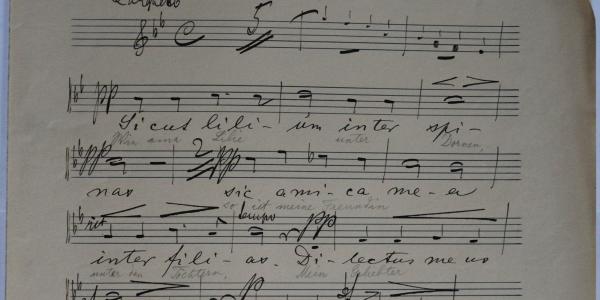 Larghetto
5
pp
Sicut lili- um inter spi-
Wie eine Lilie unter Dornen,
pp 2 pp
nas sic ami-ca me-a
so ist meine Freundin
rit tempo pp
inter fili- as. Di-lectus meus
unter den Töchtern, Mein Geliebter
p